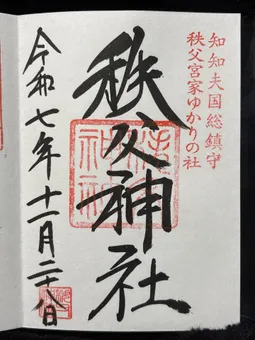 知知夫国総鎮守
秩父宮家ゆかりの社
秩父神社
令和七年十一月二十八日